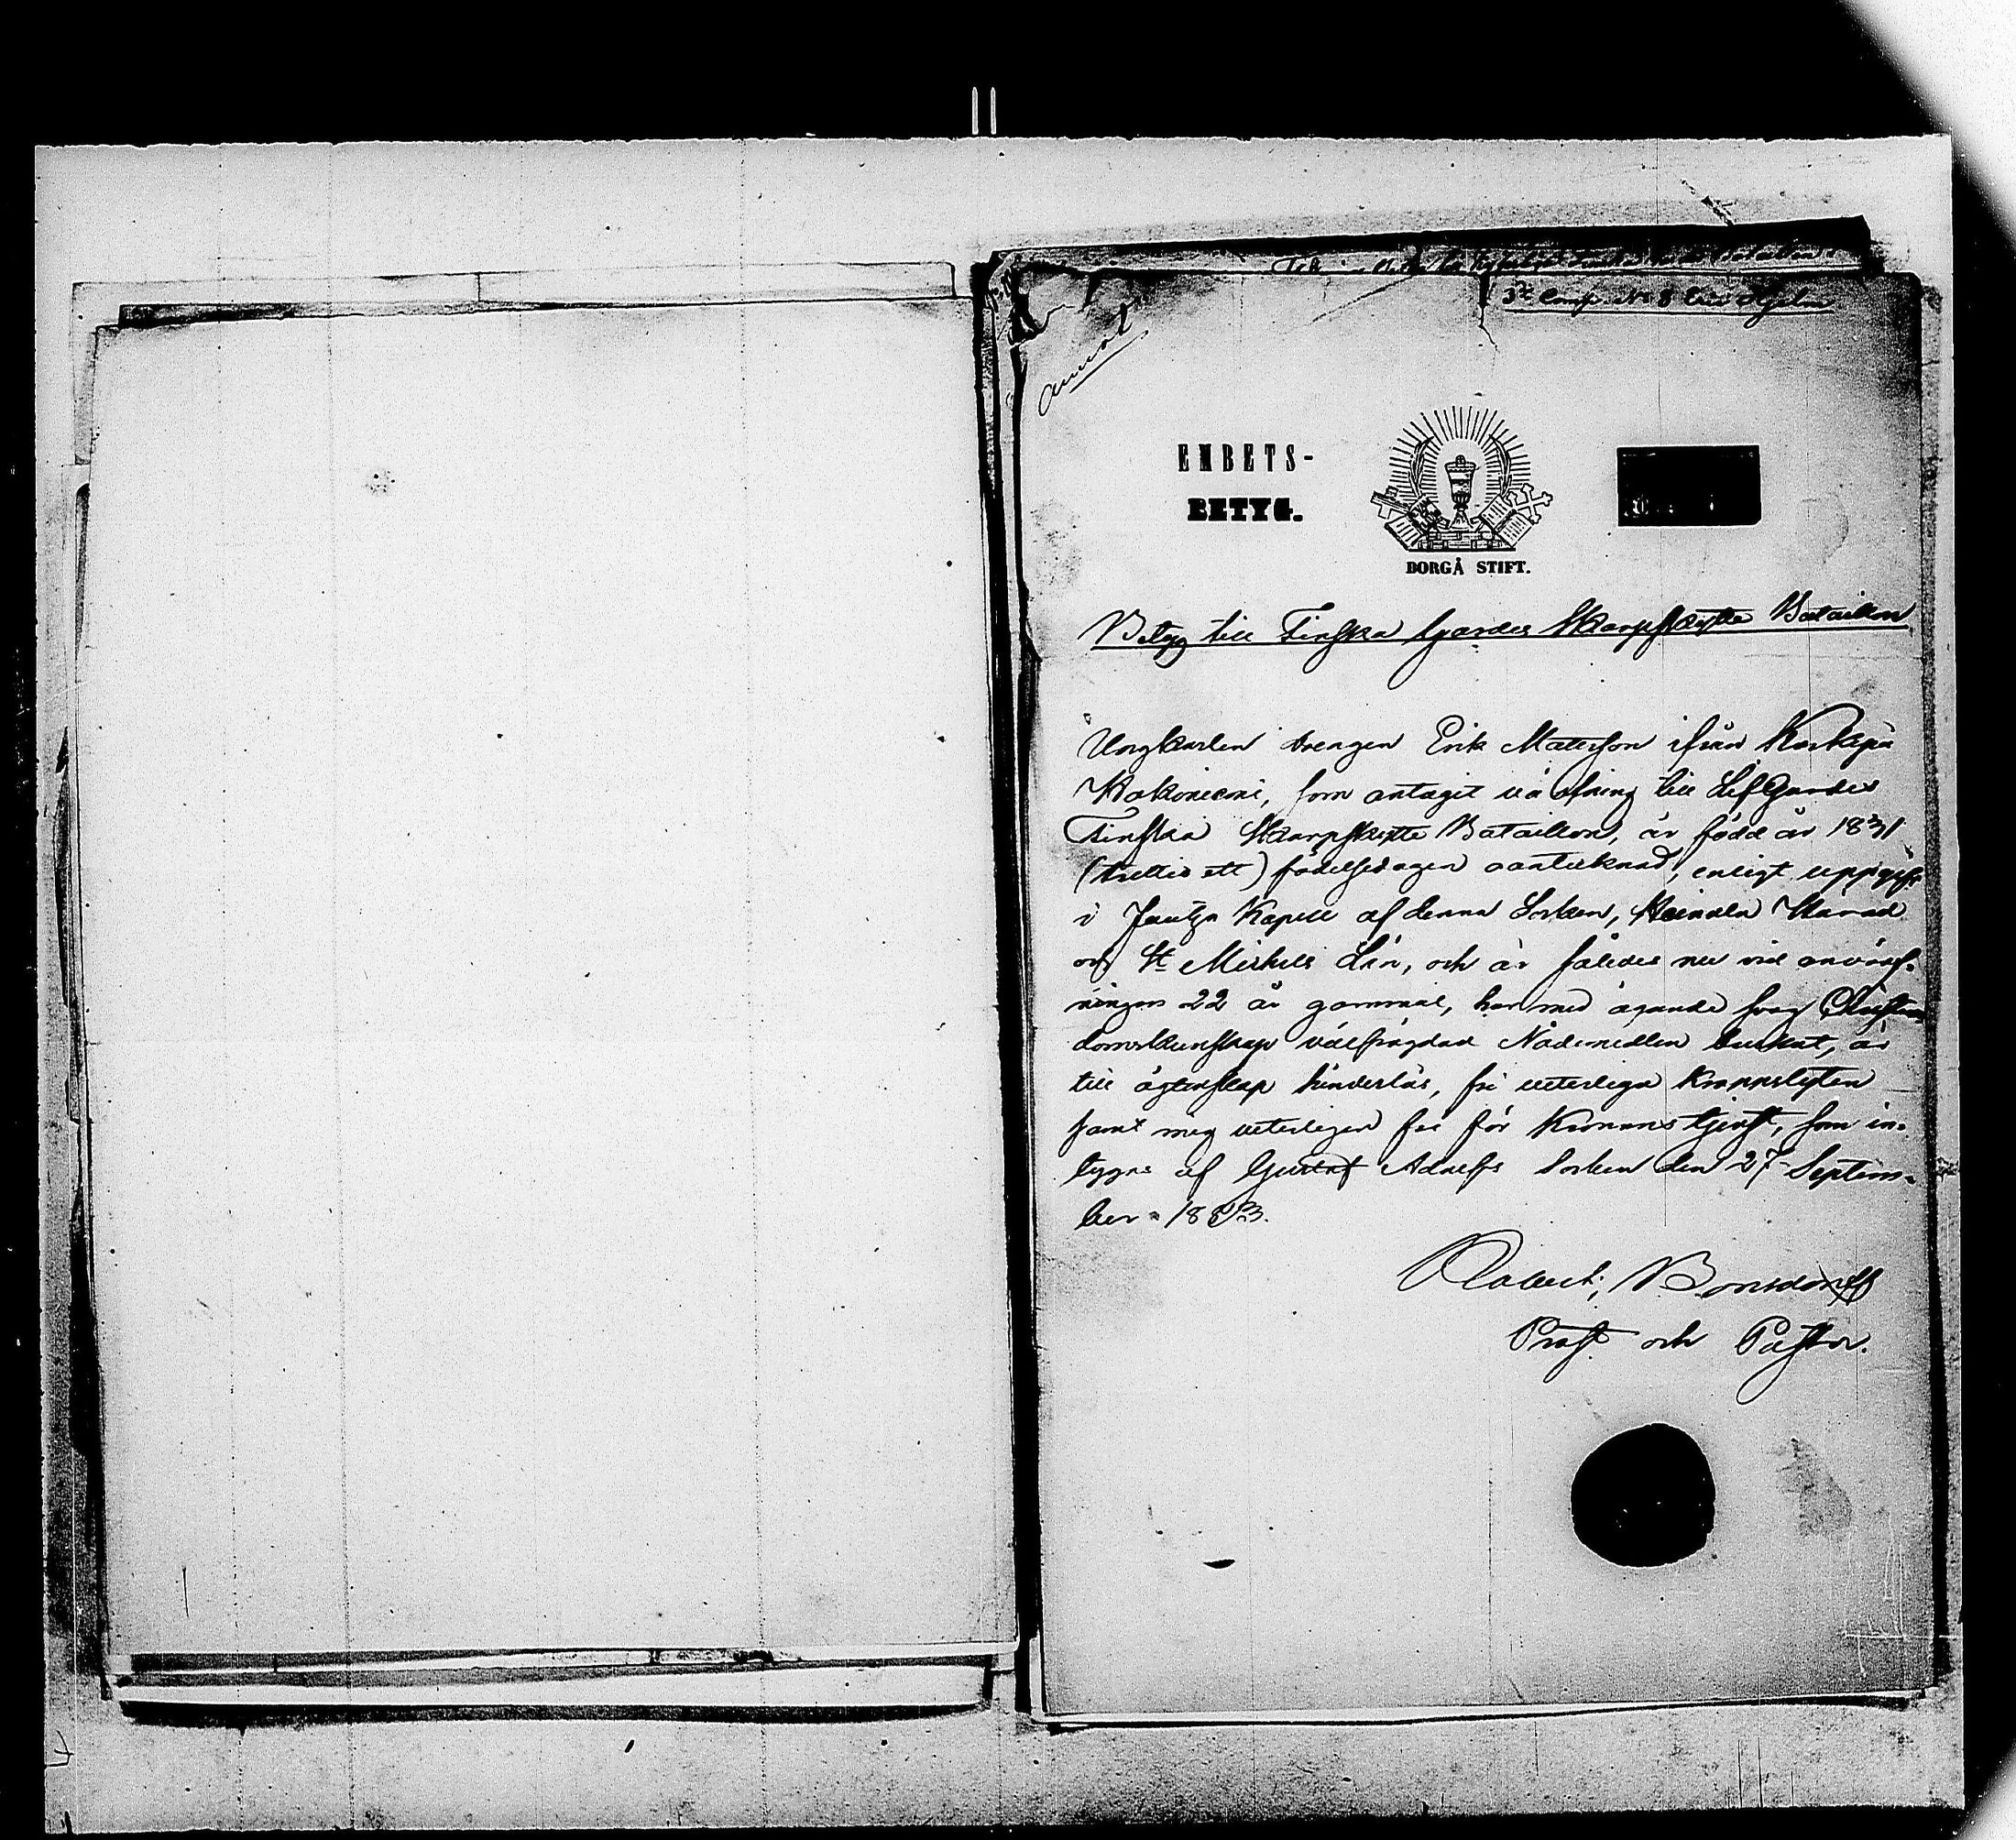 3:e Comp. No 8 Eric Hjelm
EMBETS-
BETYG.
BORGÅ STIFT.
Betyg till Finska Gardes Skarpskytte Bataillon
Ungkarlen drengen Erik Matsson ifrån
som antagit värfning till LifGardes
Finska Skarpskytte Bataillon, är född år 1831
(trettio ett) födelsedagen oantecknad, enligt uppgift
i Joutza Kapell af denna Socken, Heinola Härad
och St Michels Län, och är således nu vid anvärf-
ningen 22 år gammal, har med ägande svag Christen-
domskunskap välfrägdad Nådemedlen brukat, är
till ägtenskap hinderlös, fri veterliga kroppslyten
samt mig veterligen fri för Kronans tjenst, som in-
tygas af Gustaf Adolfs Socken den 27 Septem-
ber 1853.
Robert Bonsdorff
Prost och Pastor.